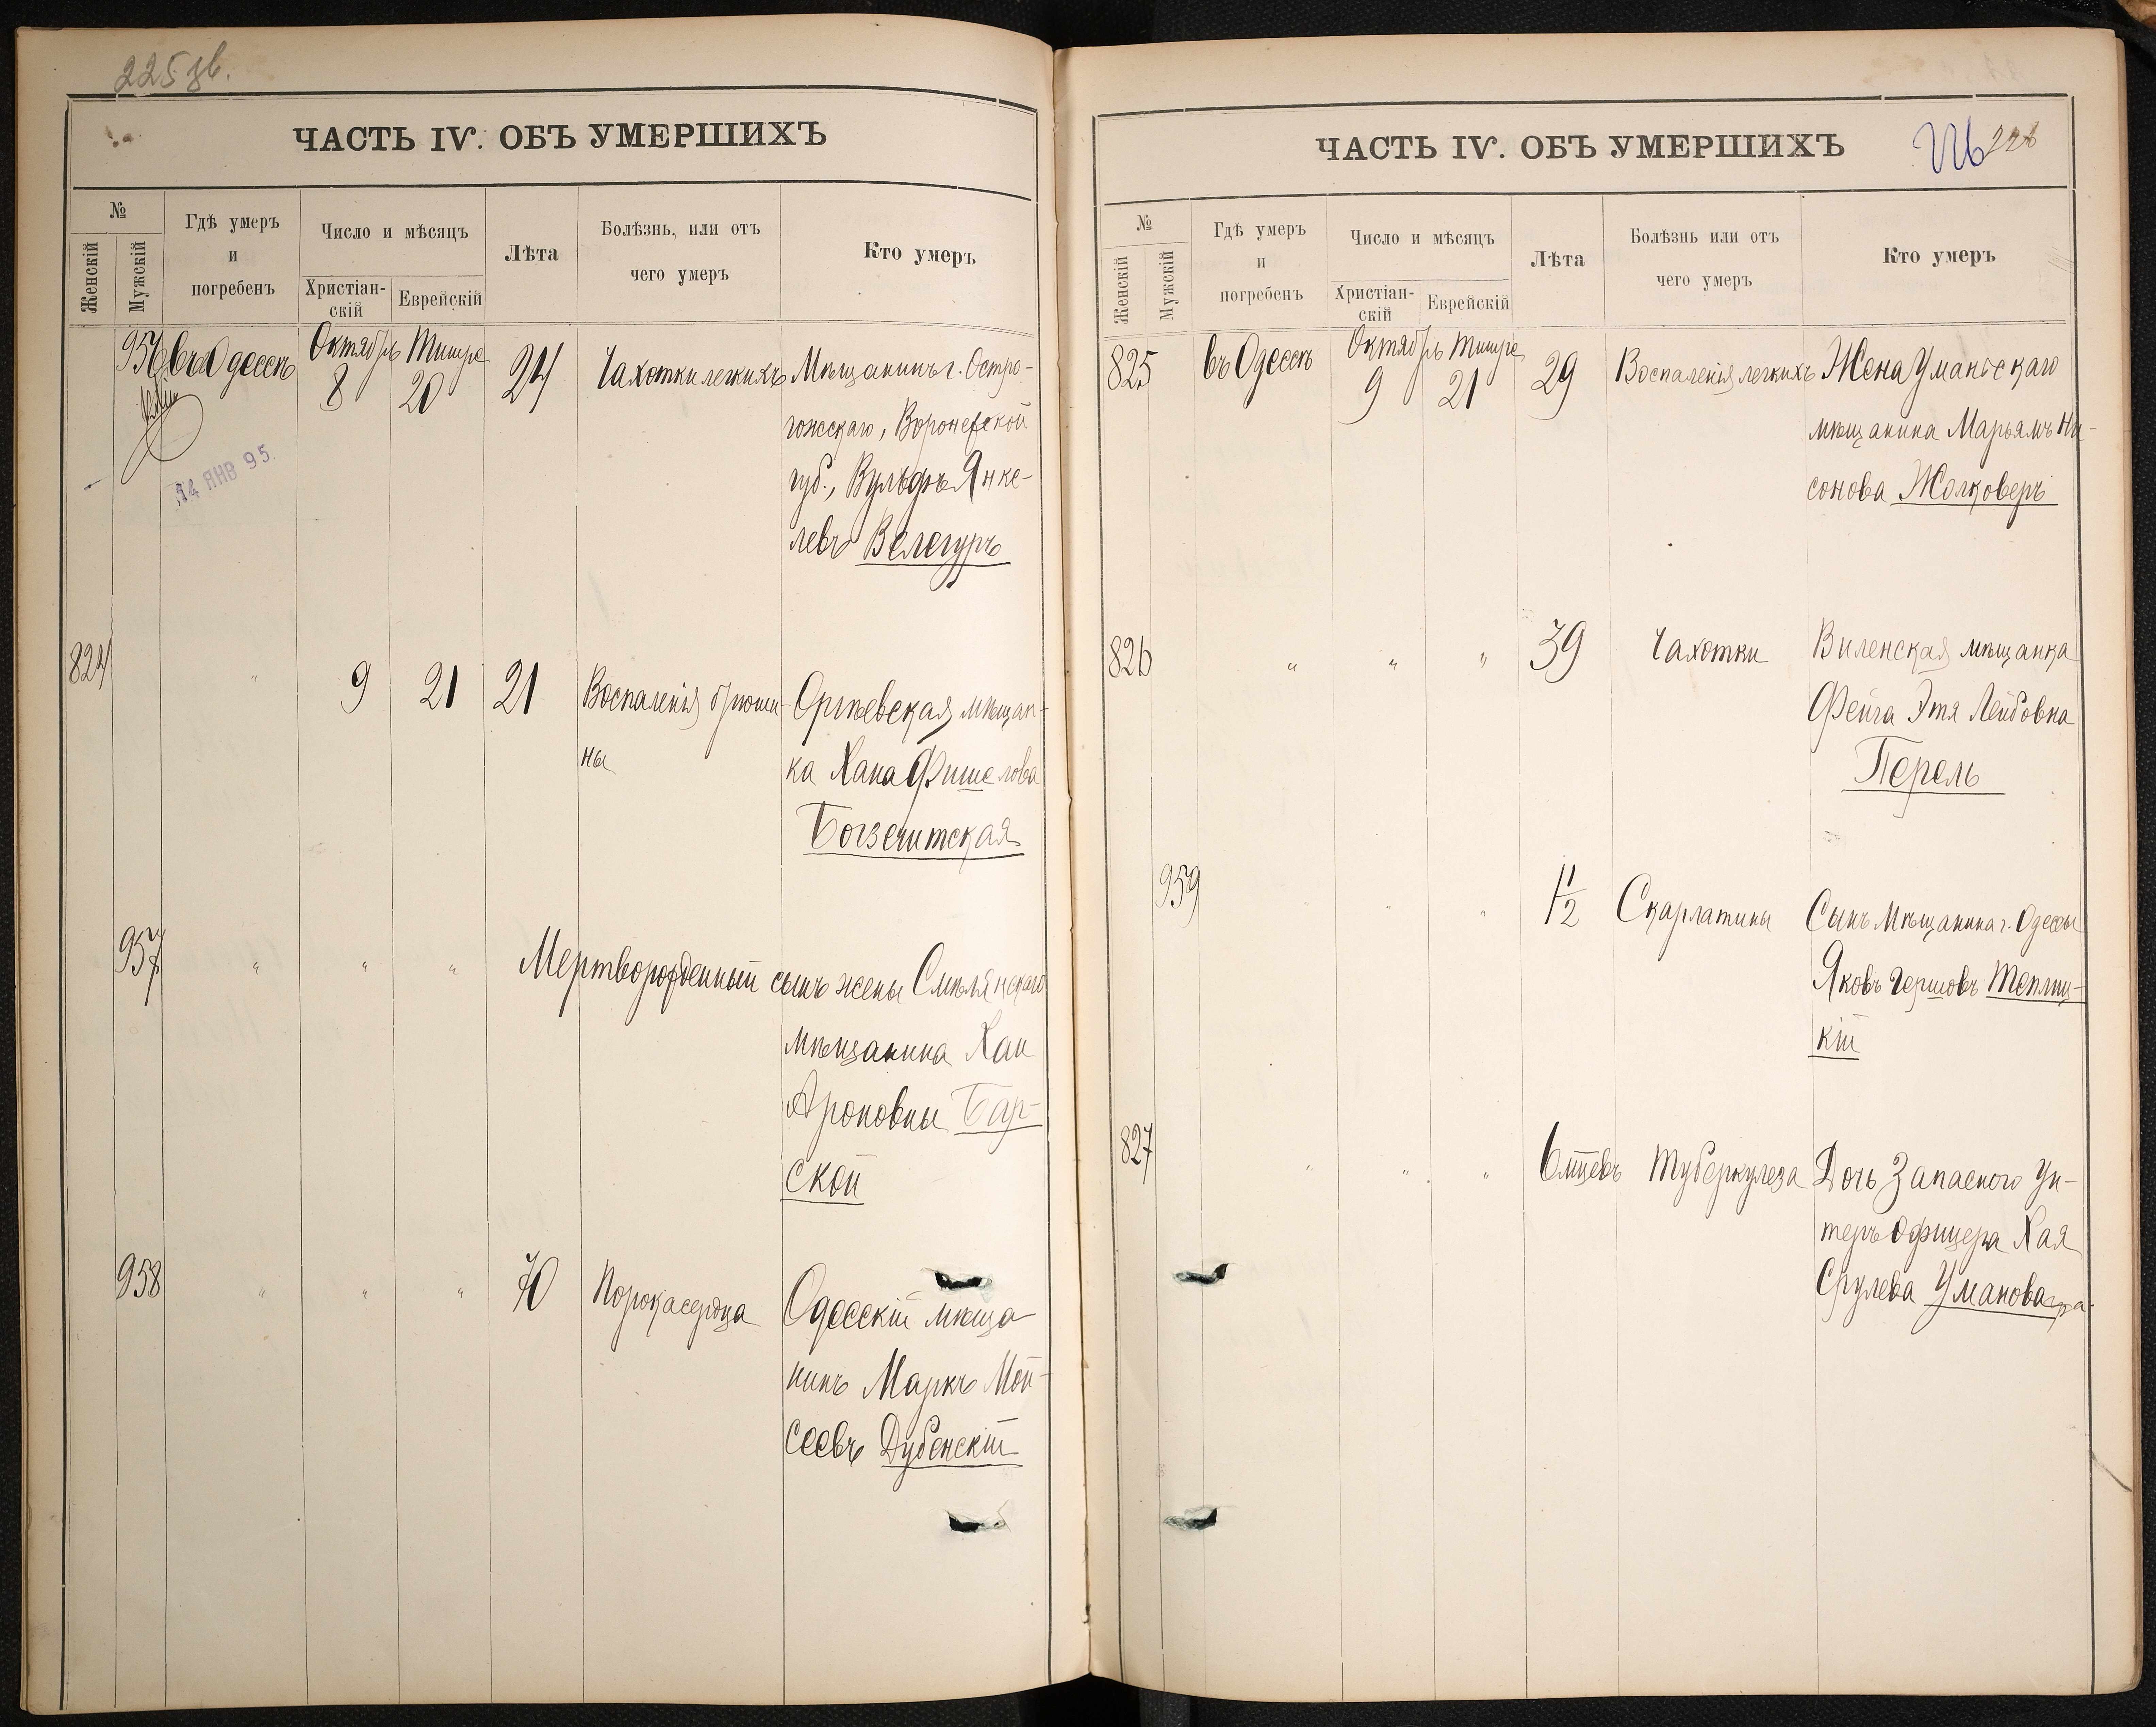 225 зв.
ЧАСТЬ IV. ОБЪ УМЕРШИХЪ
№
Женскій
Мужскій
Гдѣ умеръ
и
погребенъ
Число и мѣсяцъ
Христіан-
скій
Еврейскій
Лѣта
Болѣзнь, или отъ
чего умеръ
Кто умеръ
956 въ Одессѣ Октябрь 8 Тишре 20 24 Чахотки легкихъ Мѣщанинъ г. Остро-
гожскаго, Воронежской
губ., Вульфъ Янке-
левъ Велегуръ
14 ЯНВ 95.
824 " 9 21 21 Воспаленія брюши- Оргѣевская мѣщан-
ны ка Хана Фишелова
Богзечитская
957 " " " Мертворожденный сынъ жены Смѣлянскаго
мѣщанина Хаи
Ароновны Бар-
ской
958 " " " 70 Порока сердца Одесскій мѣща-
нинъ Маркъ Мой-
сеевъ Дубенскій
ЧАСТЬ IV. ОБЪ УМЕРШИХЪ
226 226
№
Женскій
Мужскій
Гдѣ умеръ
и
погребенъ
Число и мѣсяцъ
Христіан-
скій
Еврейскій
Лѣта
Болѣзнь или отъ
чего умеръ
Кто умеръ
825 въ Одессѣ Октябрь 9 Тишре 21 29 Воспаленія легкихъ Жена Уманьскаго
мѣщанина Марьямъ Ни-
сонова Жолковеръ
826 " " " 39 Чахотки Виленская мѣщанка
Фейга Этя Лейбовна
Перель
959 " " " 1 1/2 Скарлатины Сынъ мѣщанина г. Одессы
Яковъ Гершовъ Теплиц-
кій
827 " " " 6 мцевъ Туберкулеза Дочь Запасного Ун-
теръ Офицера Хая
Срулева Уманова